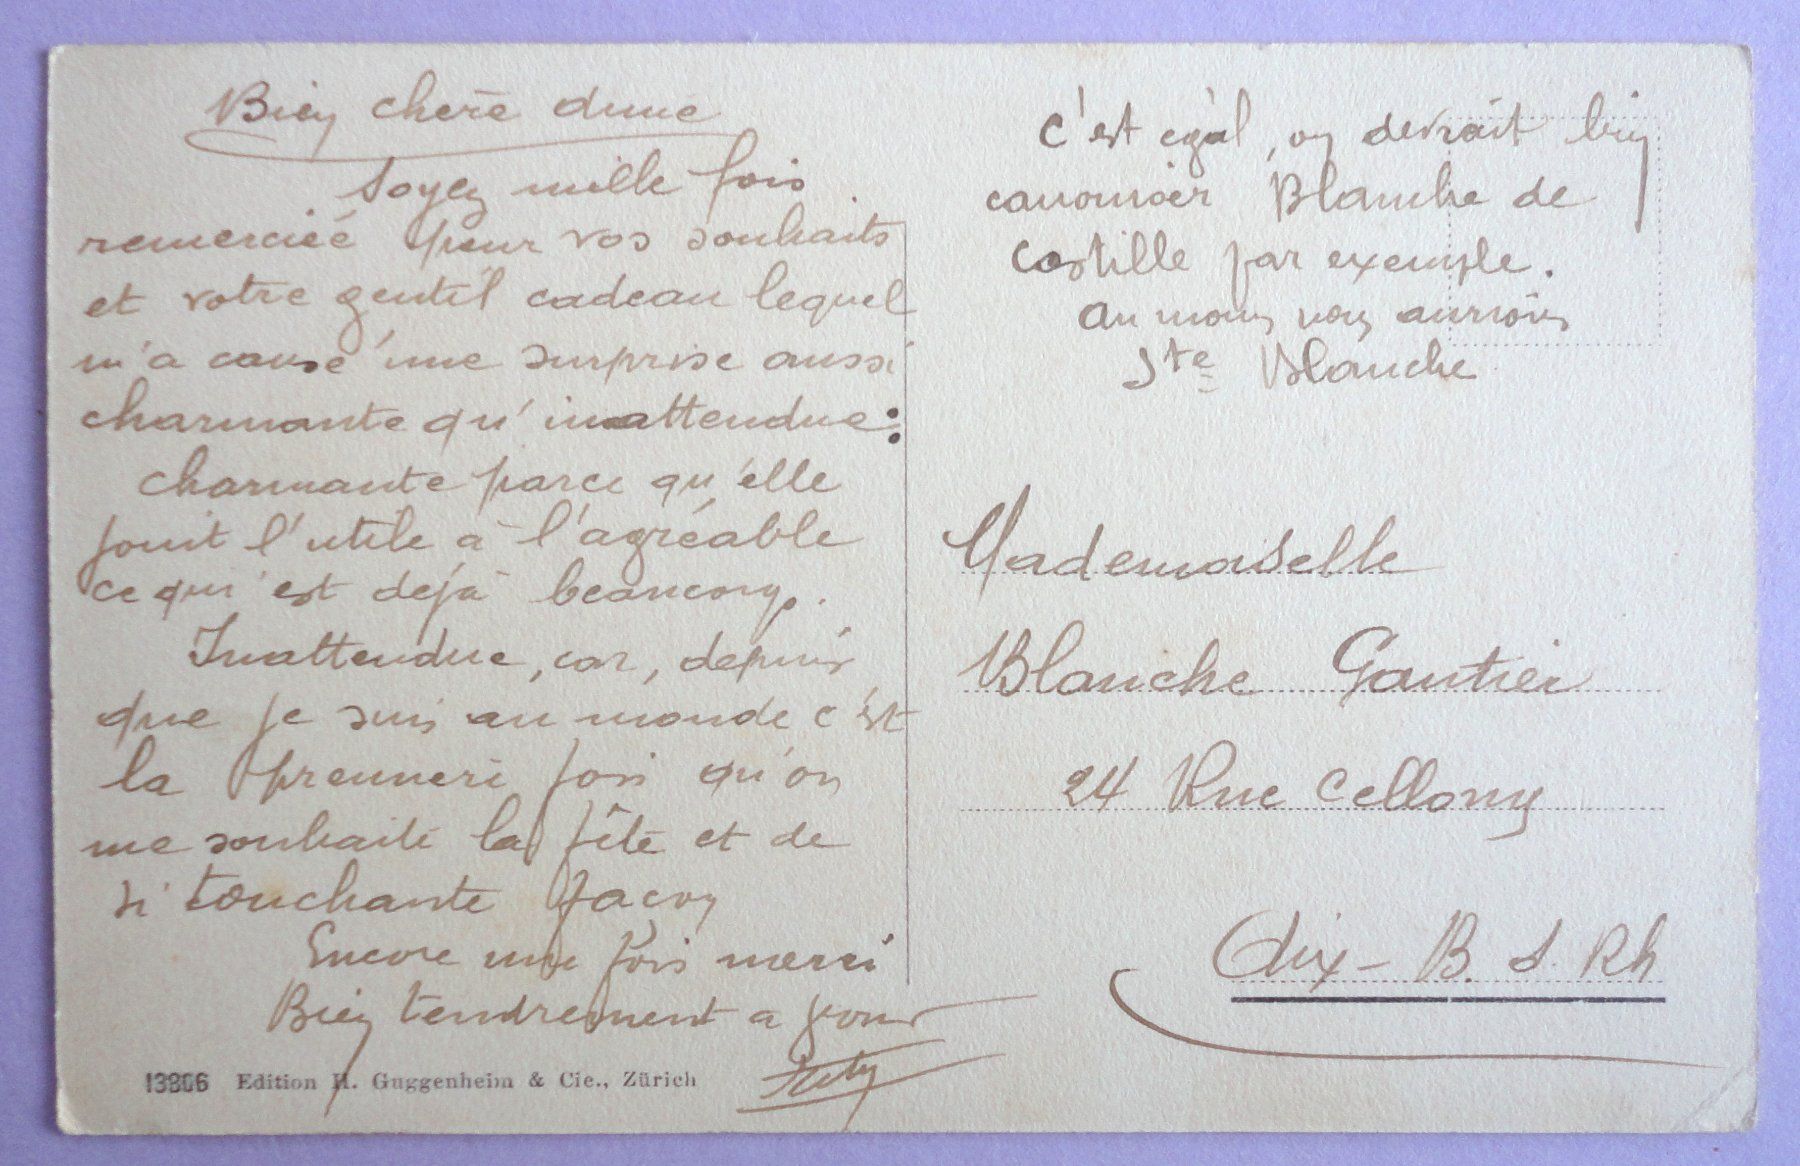 Bien chère amie
Soyez mille fois
remerciée pour vos souhaits
et votre gentil cadeau lequel
m'a causé une surprise aussi
charmante qu'inattendue:
charmante parce qu'elle
joint l'utile à l'agréable
ce qui est déjà beaucoup.
Inattendue, car, depuis
que je suis au monde c'est
la première fois qu'on
me souhaite la fête et de
si touchante façon
Encore une fois merci
Bien tendrement a vous
13806 Edition H. Guggenheim & Cie., Zürich
c'est egal, on devrait bien
canoniser Blanche de
Castille par exemple.
au moins nous aurions
Ste Blanche
Mademoiselle
Blanche Gautier
24 Rue Cellony
Aix - B. d. Rh